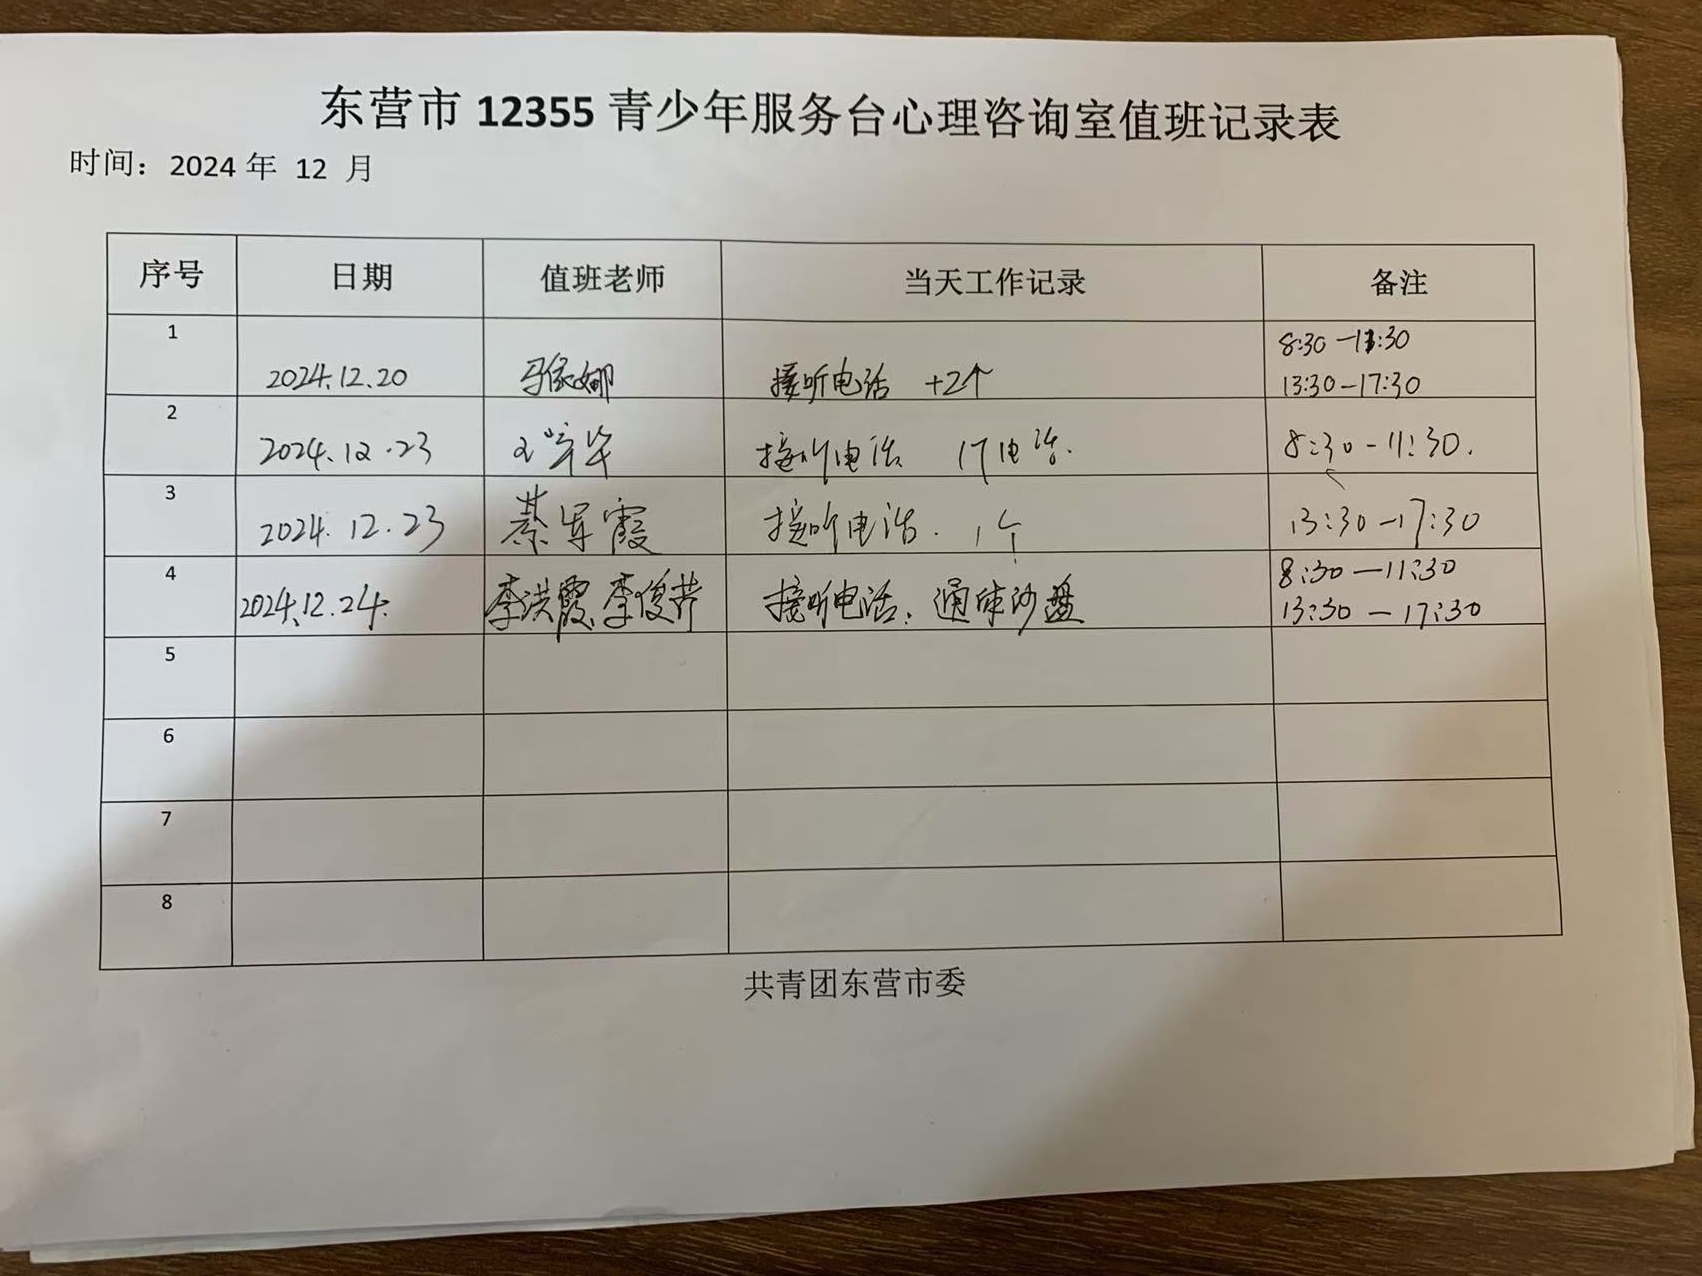 东营市 12355 青少年服务台心理咨询室值班记录表
时间：2024 年 12 月
序号 日期 值班老师 当天工作记录 备注
1 2024.12.20 接听电话 +2个 8:30-11:30
13:30-17:30
2 2024.12.23 接听电话 1个电话. 8:30-11:30.
3 2024.12.23 綦军霞 接听电话. 1个 13:30-17:30
4 2024.12.24. 李洪霞、李俊芹 接听电话. 沙盘 8:30-11:30
13:30-17:30
5
6
7
8
共青团东营市委